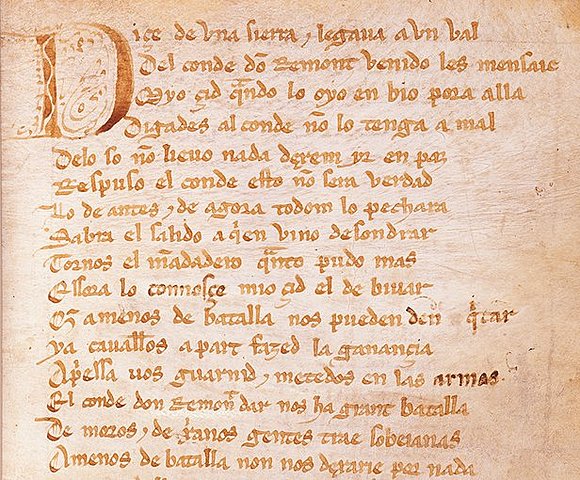 Diçe de vna sierra ⁊ legaua a vn val
Del conde dõ Remont venido les mensaie
Myo çid qñdo lo oyo en bio pora alla
Digades al conde nõ lo tenga a mal
Delo so nõ lieuo nada dexem yr en paz
Respuso el conde esto nõ sera verdad
Lo de antes ⁊ de agora todom lo pechara
Sabra el salido a quien vino desondrar
Tornos el mãdadero quãto pudo mas
Essora lo connosçe mio çid el de biuar
Q̃ a menos de batalla nos pueden den quitar
ya cauallos a part fazed la ganançia
Apriessa uos guarnid ⁊ metedos en las armas
El conde don Remont dar nos ha grant batalla
De moros ⁊ de xp̃anos gentes trae sobeianas
A menos de batalla non nos dexarie por nada